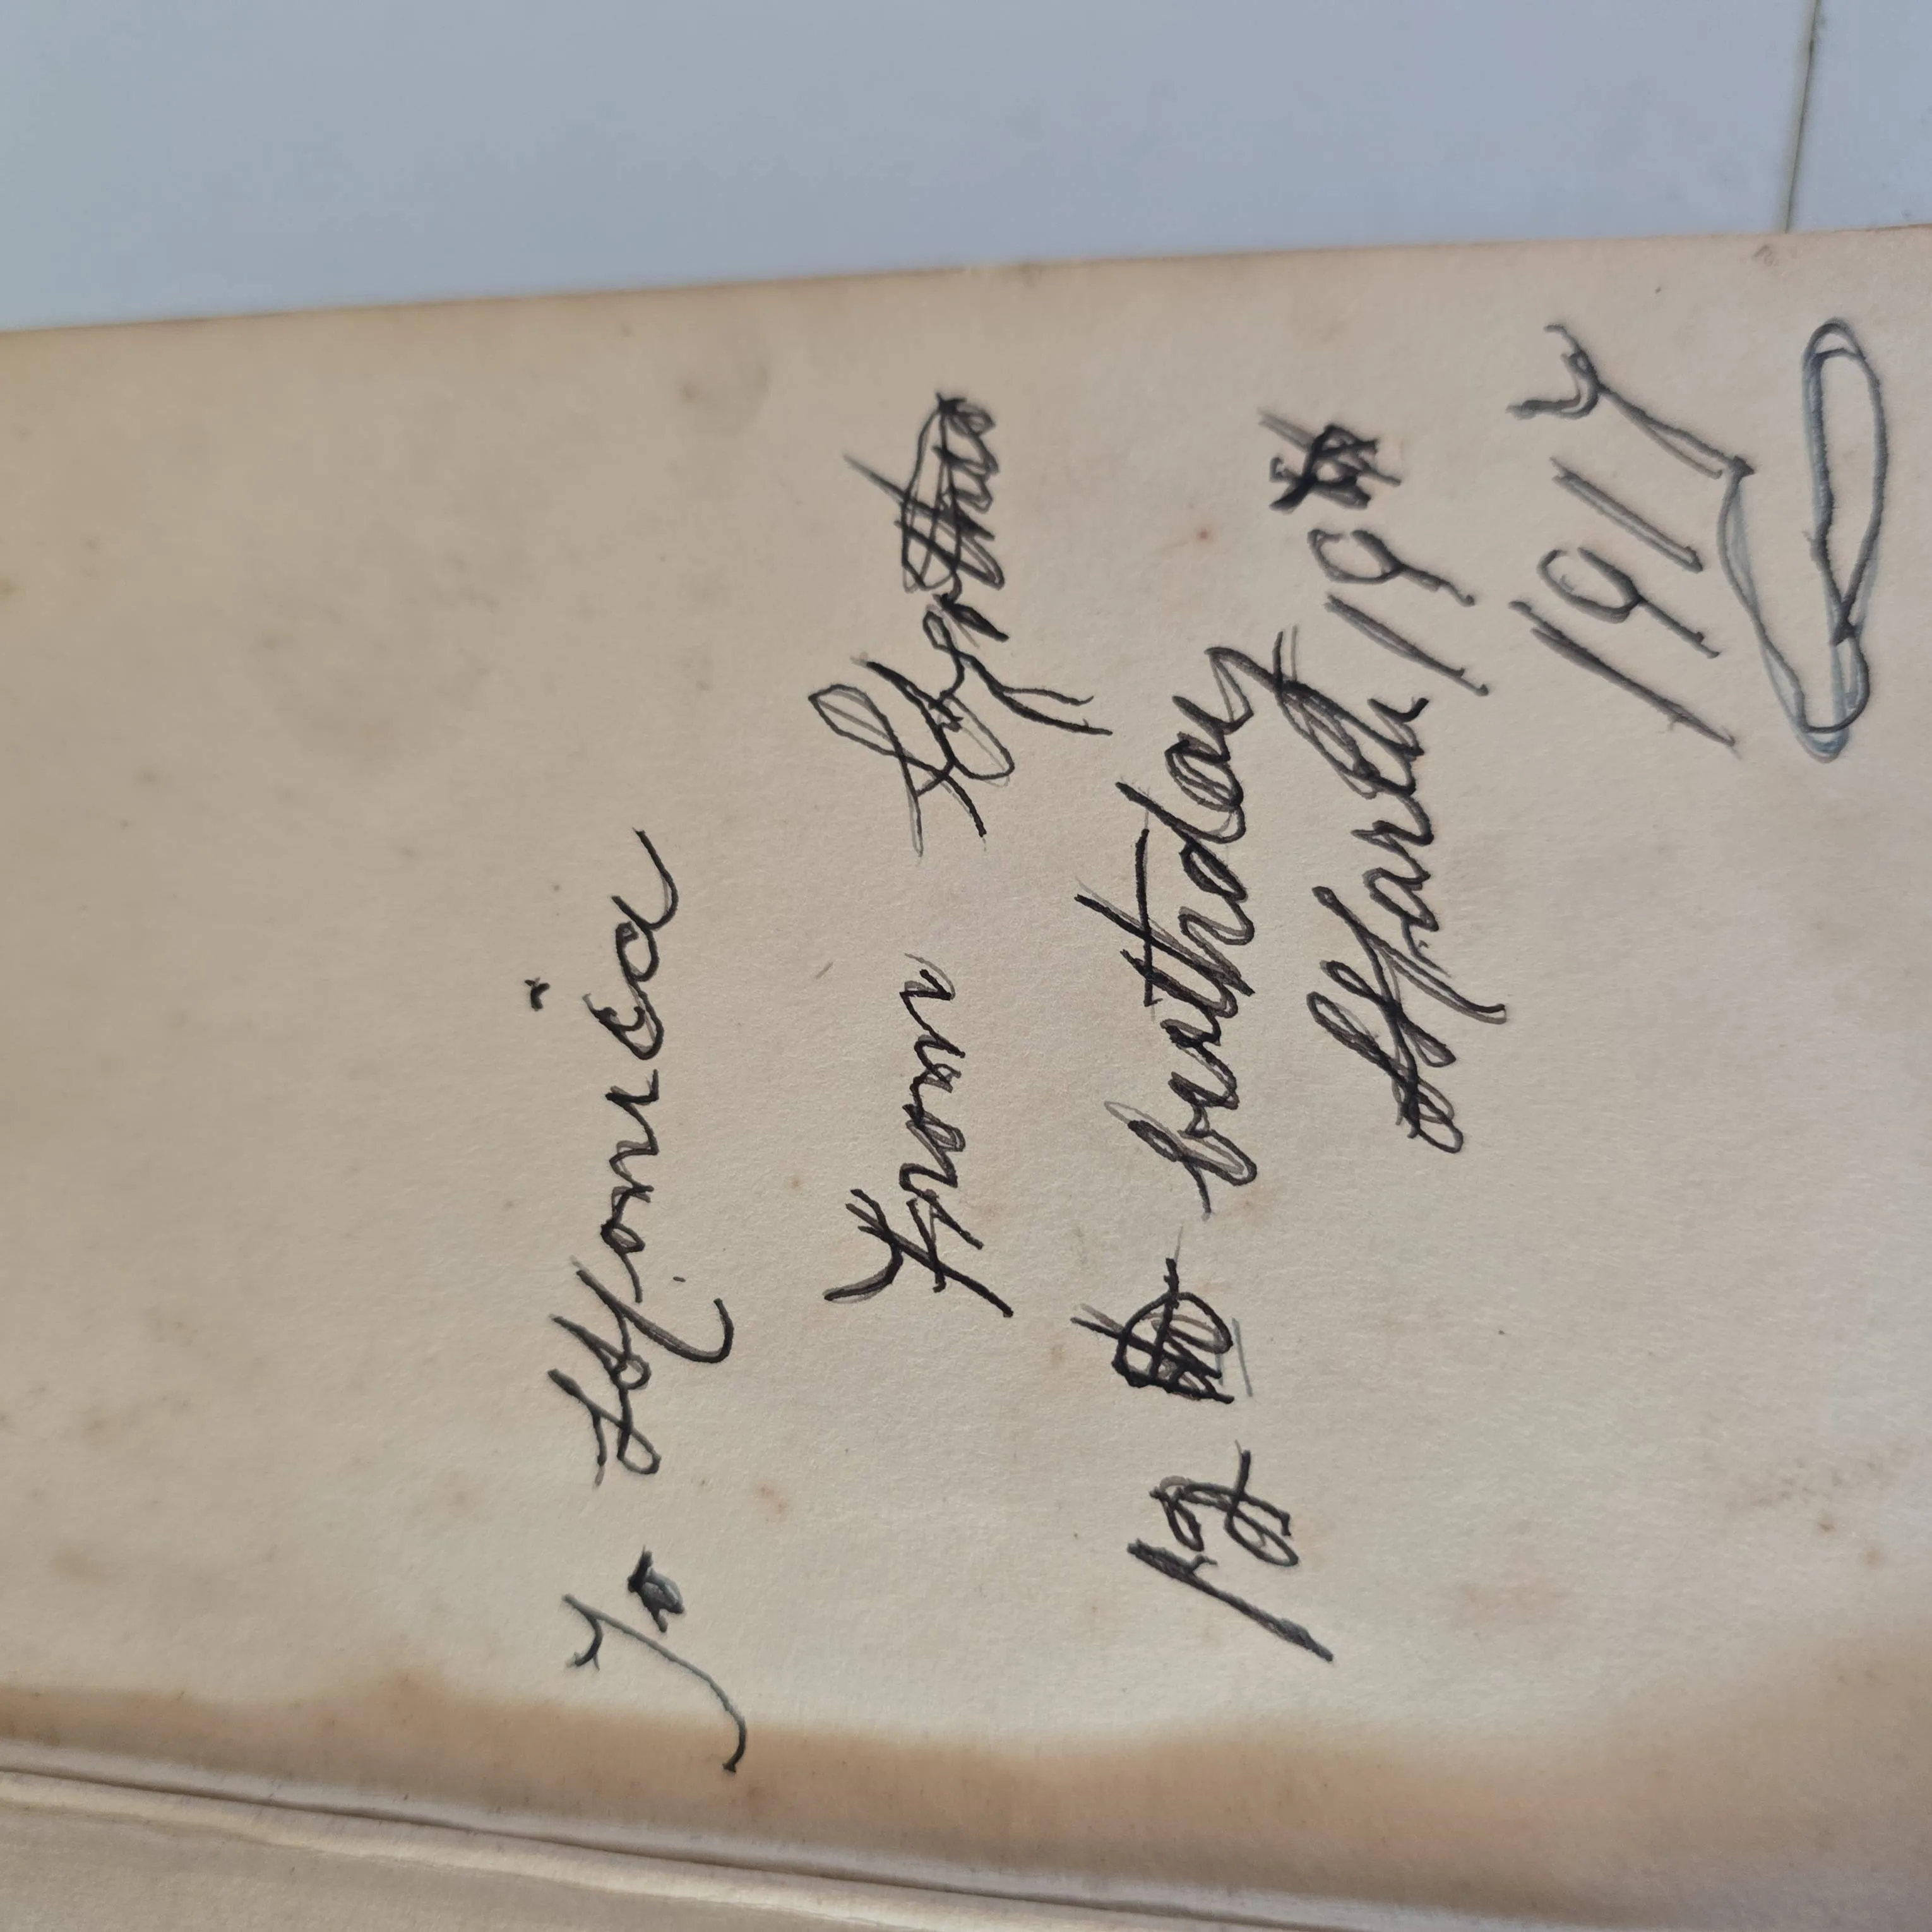 To Monica
From Cynthia
12th birthday
March 19th
191